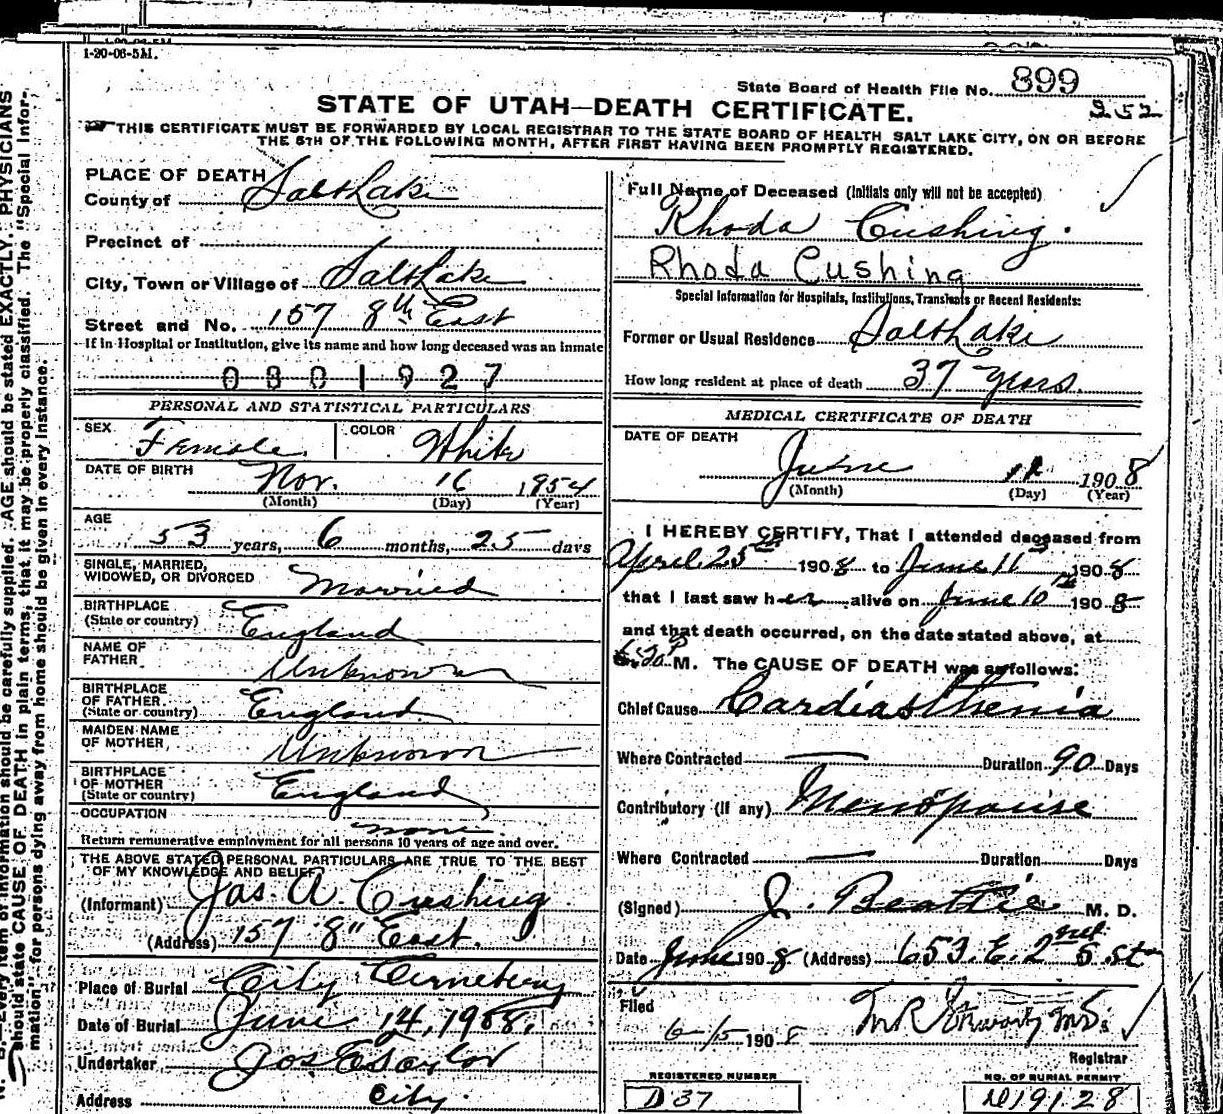 1-20-06-5M.
State Board of Health File No. 899
252
STATE OF UTAH—DEATH CERTIFICATE.
THIS CERTIFICATE MUST BE FORWARDED BY LOCAL REGISTRAR TO THE STATE BOARD OF HEALTH SALT LAKE CITY, ON OR BEFORE
THE 5TH OF THE FOLLOWING MONTH, AFTER FIRST HAVING BEEN PROMPTLY REGISTERED.
PLACE OF DEATH
County of Salt Lake
Precinct of
City, Town or Village of Salt Lake
Street and No. 157 8th East
If in Hospital or Institution, give its name and how long deceased was an inmate
0801927
PERSONAL AND STATISTICAL PARTICULARS
SEX Female COLOR White
DATE OF BIRTH Nov. 16 1854
(Month) (Day) (Year)
AGE
53 years, 6 months, 25 days
SINGLE, MARRIED,
WIDOWED, OR DIVORCED Married
BIRTHPLACE
(State or country) England
NAME OF
FATHER Unknown
BIRTHPLACE
OF FATHER
(State or country) England
MAIDEN NAME
OF MOTHER Unknown
BIRTHPLACE
OF MOTHER
(State or country) England
OCCUPATION
none
Return remunerative employment for all persons 10 years of age and over.
THE ABOVE STATED PERSONAL PARTICULARS ARE TRUE TO THE BEST
OF MY KNOWLEDGE AND BELIEF
(Informant) Jas. A. Cushing
(Address) 157 8" East.
Place of Burial City Cemetery
Date of Burial June 14, 1908.
Undertaker Jos E Taylor
Address City.
Full Name of Deceased (Initials only will not be accepted)
Rhoda Cushing.
Rhoda Cushing
Special Information for Hospitals, Institutions, Transients or Recent Residents:
Former or Usual Residence Salt Lake
How long resident at place of death 37 years.
MEDICAL CERTIFICATE OF DEATH
DATE OF DEATH
June 11 1908
(Month) (Day) (Year)
I HEREBY CERTIFY, That I attended deceased from
April 25th 1908 to June 11th 1908
that I last saw her alive on June 10th 1908
and that death occurred, on the date stated above, at
M. The CAUSE OF DEATH was as follows:
Chief Cause Cardiasthenia
Where Contracted — Duration 90 Days
Contributory (if any) Menopause
Where Contracted — Duration Days
(Signed) J. Beattie M. D.
Date June 1908 (Address) 653. E. 2nd S. st
Filed
6/15 1908
Registrar
REGISTERED NUMBER
D 37
NO. OF BURIAL PERMIT
D19128
Every item of information should be carefully supplied. AGE should be stated EXACTLY. PHYSICIANS
should state CAUSE OF DEATH in plain terms, that it may be properly classified. The "Special Infor-
mation" for persons dying away from home should be given in every instance.